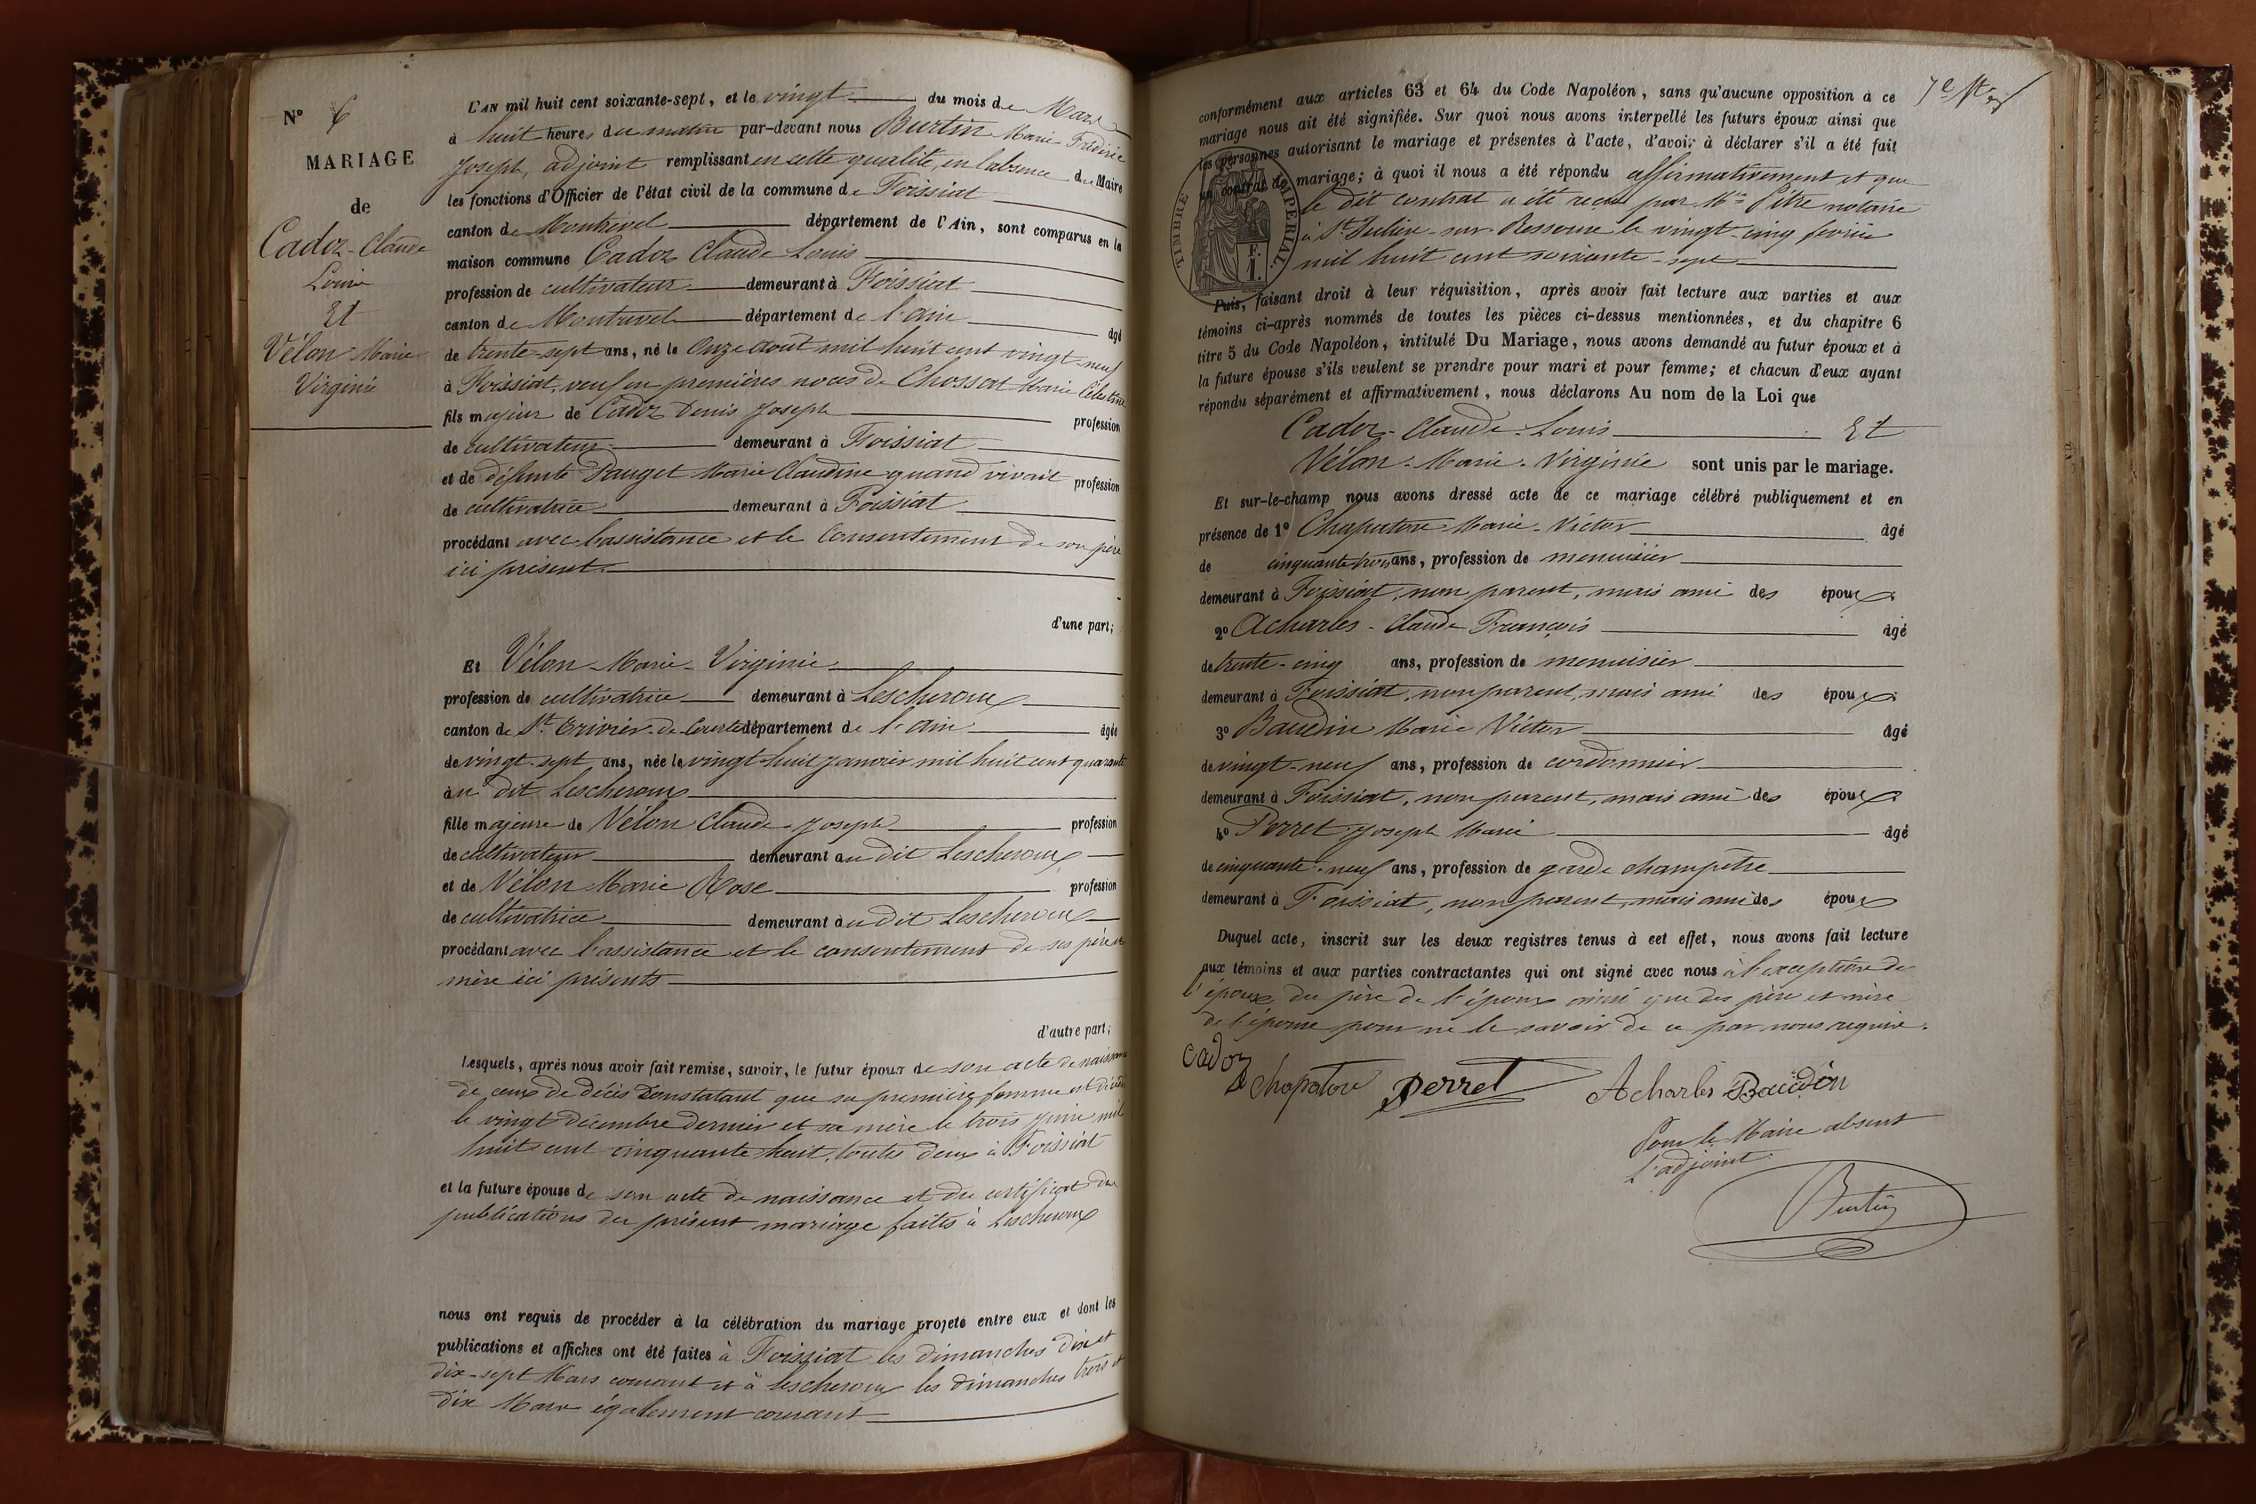 N° 6
MARIAGE
de
Cadoz - Claude
Louis
Et
Vélon Marie
Virginie
L'AN mil huit cent soixante-sept, et le vingt du mois de Mars
à huit heures du matin par-devant nous Burtin Marie Frédéric
Joseph, adjoint remplissant en cette qualité, en l'absence du Maire
les fonctions d'Officier de l'état civil de la commune de Foissiat
canton de Montrevel département de l'Ain, sont comparus en la
maison commune Cadoz Claude Louis
profession de cultivateur demeurant à Foissiat
canton de Montrevel département de l'ain âgé
de trente-sept ans, né le onze août mil huit cent vingt-neuf
à Foissiat, veuf en premières noces de Chossat Marie Célestine
fils majeur de Cadoz Denis Joseph profession
de cultivateur demeurant à Foissiat
et de défunte Pauget Marie Claudine quand vivait profession
de cultivatrice demeurant à Foissiat
procédant avec l'assistance et le consentement de son père
ici présent.
d'une part;
Et Vélon - Marie - Virginie
profession de cultivatrice demeurant à Lescheroux
canton de St. Trivier-de-Courtes département de l'ain âgée
de vingt-sept ans, née le vingt-huit janvier mil huit cent quarante
au dit Lescheroux
fille majeure de Vélon Claude-Joseph profession
de cultivateur demeurant au dit Lescheroux
et de Vélon Marie Rose profession
de cultivatrice demeurant au dit Lescheroux
procédant avec l'assistance et le consentement de ses père et
mère ici présents
d'autre part;
Lesquels, après nous avoir fait remise, savoir, le futur époux de son acte de naissance
de ceux de décès constatant que sa première femme est décédée
le vingt décembre dernier et sa mère le trois juin mil
huit cent cinquante huit, toutes deux à Foissiat
et la future épouse de son acte de naissance et du certificat des
publications du présent mariage faites à Lescheroux
nous ont requis de procéder à la célébration du mariage projeté entre eux et dont les
publications et affiches ont été faites à Foissiat les dimanches dix et
dix-sept Mars courant et à Lescheroux les dimanches trois et
dix Mars également courant
conformément aux articles 63 et 64 du Code Napoléon, sans qu'aucune opposition à ce
mariage nous ait été signifiée. Sur quoi nous avons interpellé les futurs époux ainsi que
les personnes autorisant le mariage et présentes à l'acte, d'avoir à déclarer s'il a été fait
un contrat de mariage; à quoi il nous a été répondu affirmativement et que
le dit contrat a été reçu par Me Pitre notaire
à St Julien-sur-Ressouze le vingt-cinq février
mil huit cent soixante-sept
TIMBRE IMPERIAL.
F.
1.
Puis, faisant droit à leur réquisition, après avoir fait lecture aux parties et aux
témoins ci-après nommés de toutes les pièces ci-dessus mentionnées, et du chapitre 6
titre 5 du Code Napoléon, intitulé Du Mariage, nous avons demandé au futur époux et à
la future épouse s'ils veulent se prendre pour mari et pour femme; et chacun d'eux ayant
répondu séparément et affirmativement, nous déclarons Au nom de la Loi que
Cadoz - Claude - Louis Et
Vélon - Marie - Virginie sont unis par le mariage.
Et sur-le-champ nous avons dressé acte de ce mariage célébré publiquement et en
présence de 1° Chapatore Marie-Victor âgé
de cinquante trois ans, profession de menuisier
demeurant à Foissiat, non parent, mais ami des époux
2° Acharles - Claude François âgé
de trente-cinq ans, profession de menuisier
demeurant à Foissiat, non parent, mais ami des époux
3° Baudin Marie Victor âgé
de vingt-neuf ans, profession de cordonnier
demeurant à Foissiat, non parent, mais ami des époux
4° Perret Joseph Marie âgé
de cinquante-neuf ans, profession de garde champêtre
demeurant à Foissiat, non parent, mais ami des époux
Duquel acte, inscrit sur les deux registres tenus à cet effet, nous avons fait lecture
aux témoins et aux parties contractantes qui ont signé avec nous à l'exception de
l'épouse, du père de l'époux ainsi que des père et mère
de l'épouse pour ne le savoir de ce par nous requis.
Cadoz
Chapatore Perret Acharles Baudin
Pour le Maire absent
L'adjoint
Burtin